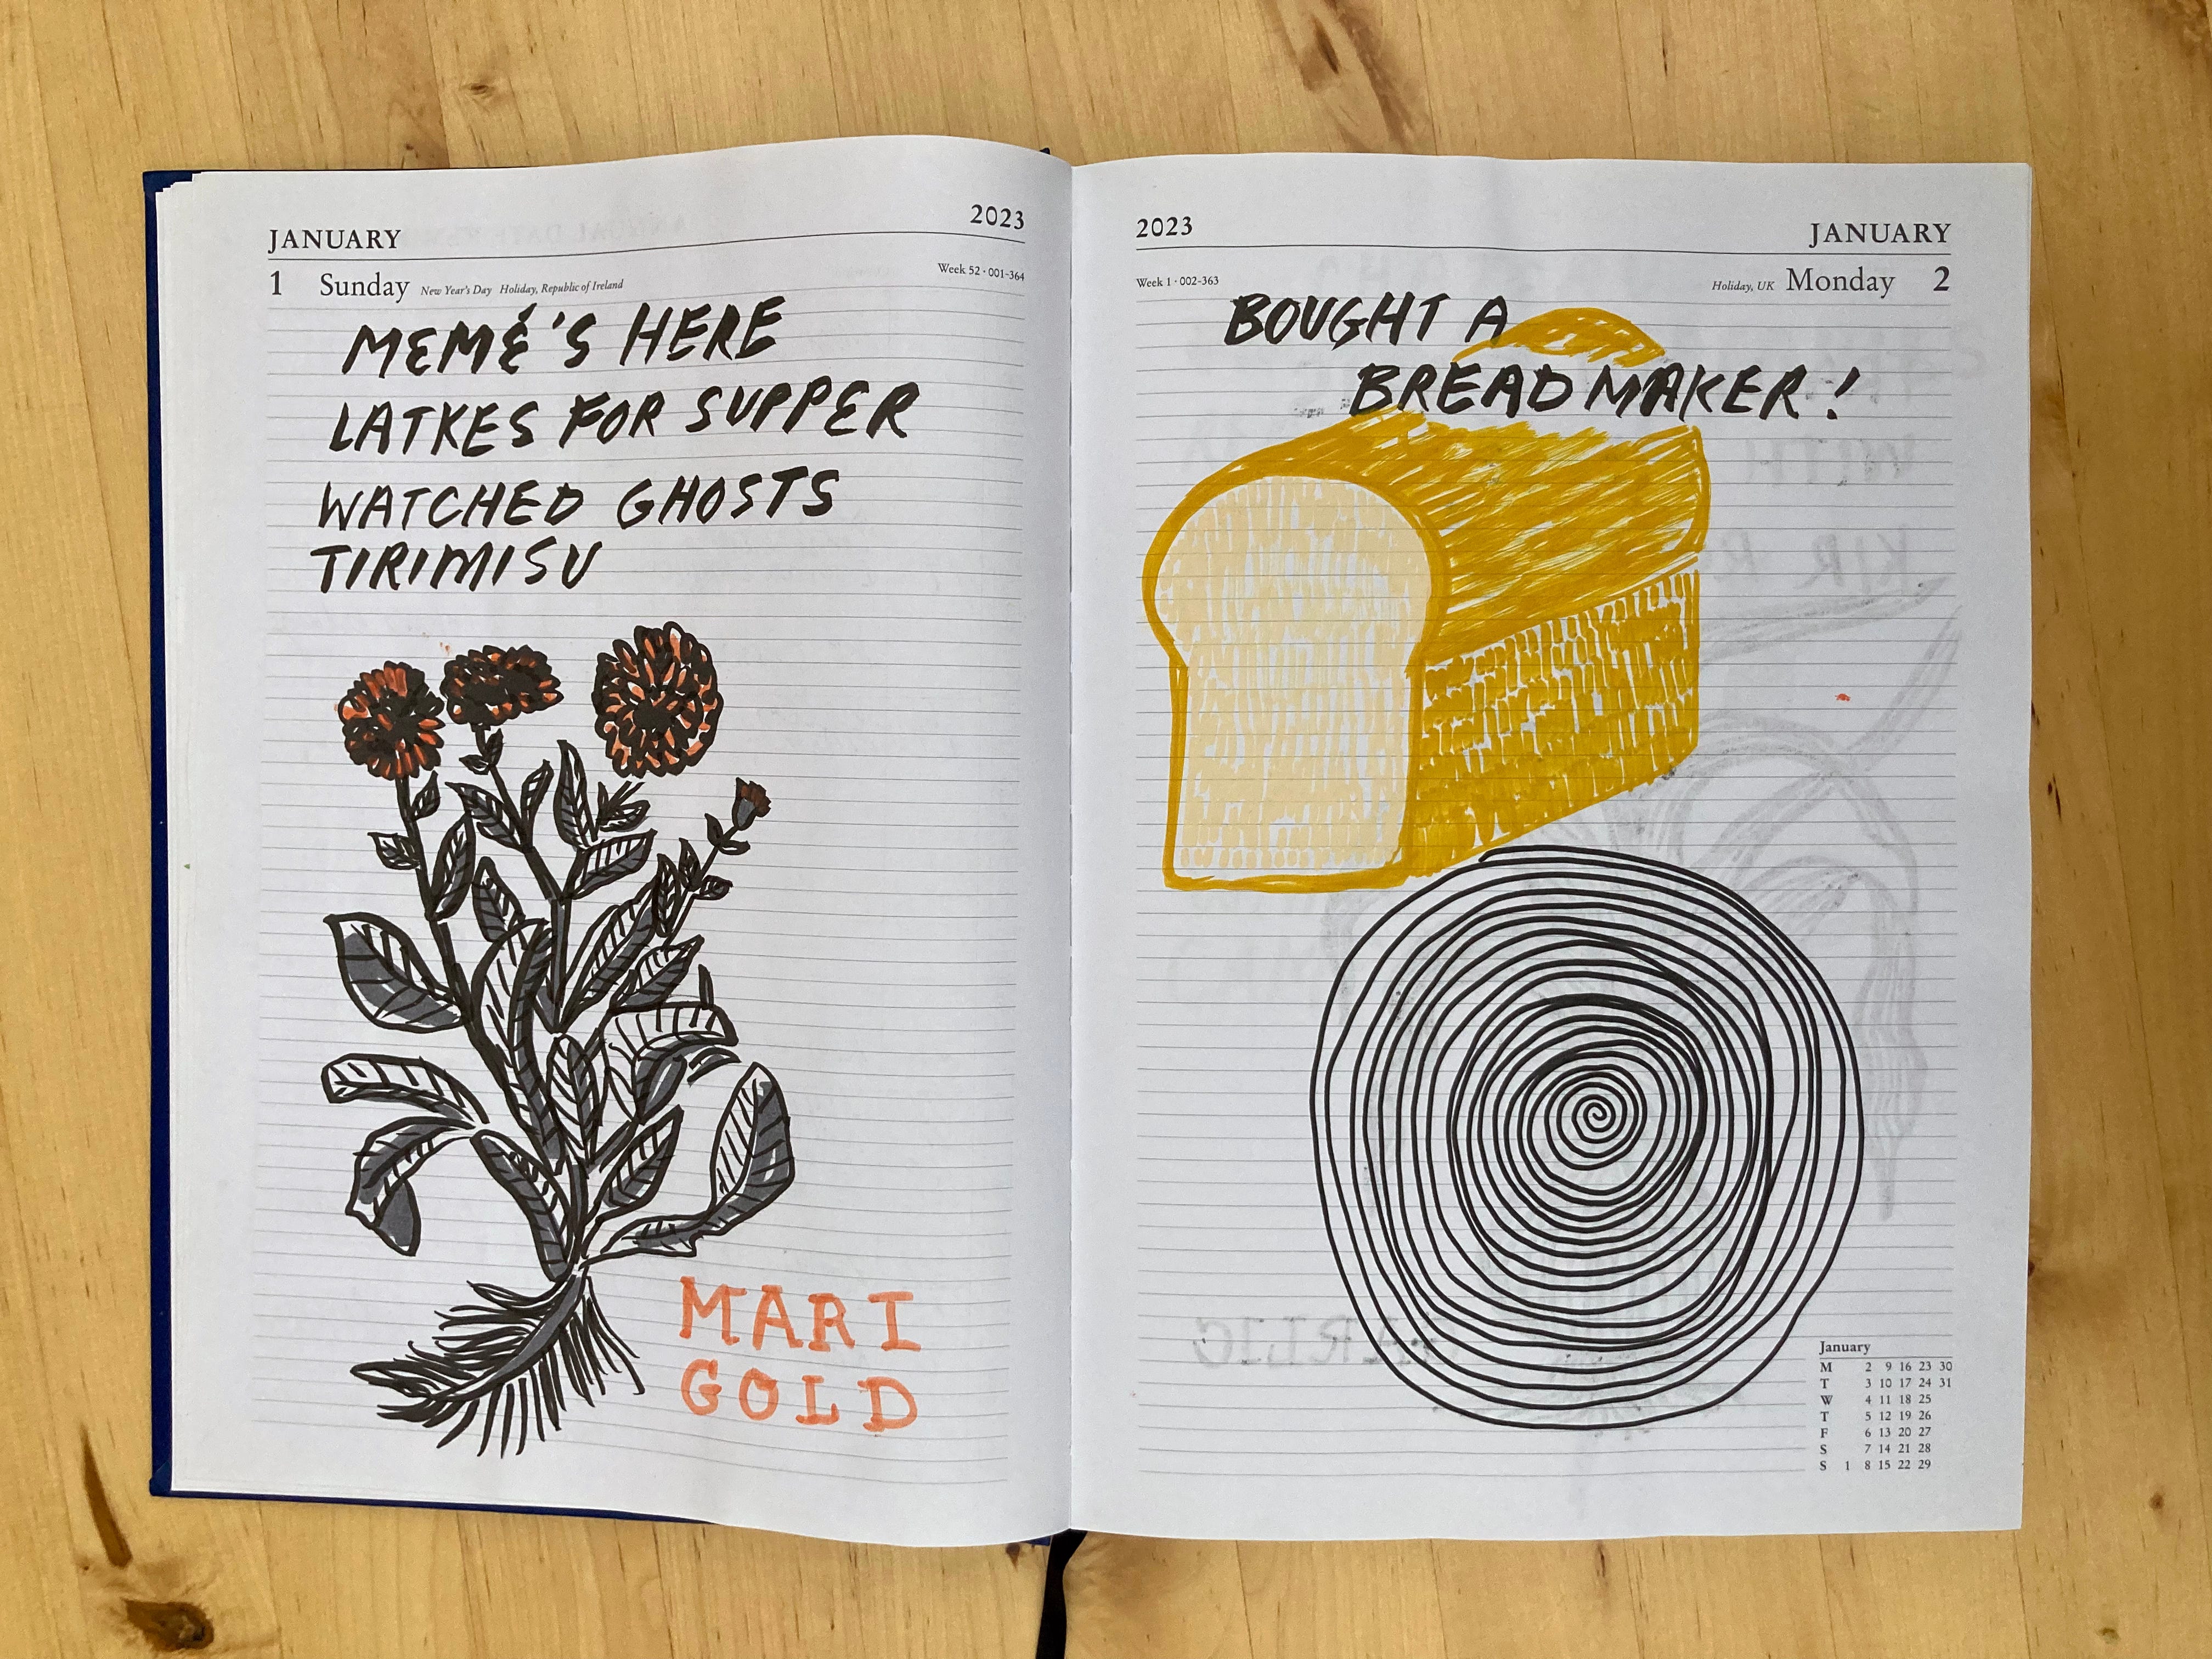 JANUARY 2023
1 Sunday New Year's Day Holiday, Republic of Ireland Week 52 · 001-364
MEMÉ'S HERE
LATKES FOR SUPPER
WATCHED GHOSTS
TIRIMISU
MARI
GOLD
2023 JANUARY
Week 1 · 002-363 Holiday, UK Monday 2
BOUGHT A
BREADMAKER!
January
M 2 9 16 23 30
T 3 10 17 24 31
W 4 11 18 25
T 5 12 19 26
F 6 13 20 27
S 7 14 21 28
S 1 8 15 22 29